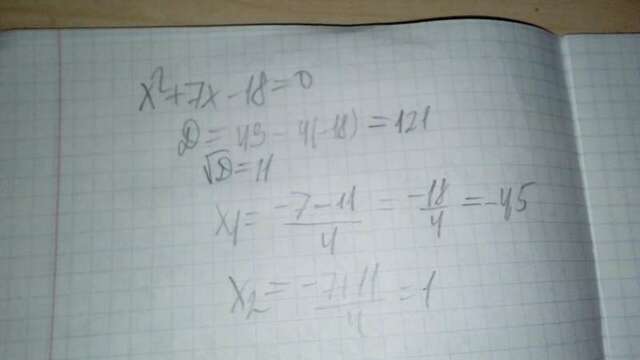 x²+7x-18=0
D=49-4(-18)=121
√D=11
x1=(-7-11)/4=-18/4=-45
x2=(-7+11)/4=1